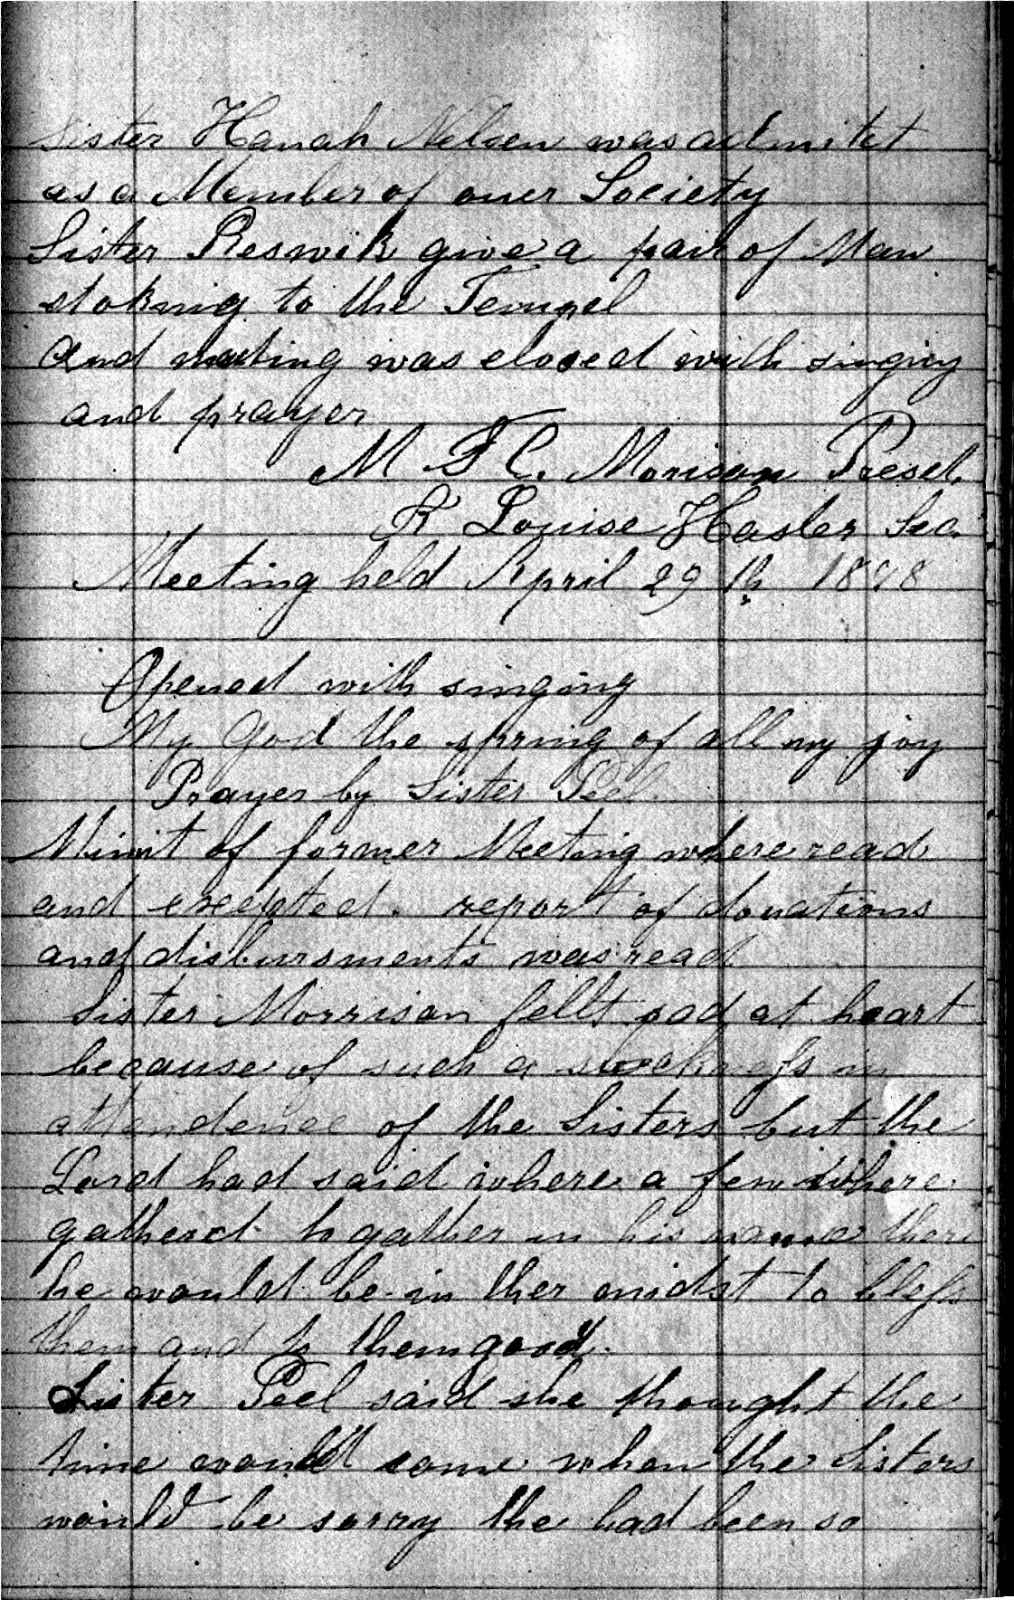 Sister Hanah Nelsen was admitet
as a Member of ouer Society
Sister Reswik give a pair of Man
stoking to the Tempel
and meeting was closed with singing
and prayer
M F C. Morison Presed.
A Louise Hasler Sec.
Meeting held April 29 th 1878
Opened with singing
My God the spring of all my joy
Prayer by Sister Peel
Minit of former Meeting where read
and excepted. report of donations
and disbursments was read
Sister Morrison fellt sad at heart
because of such a slackness in
attendence of the Sisters but the
Lord had said where a few where
gathered togather in his name there
he would be in ther midst to bless
them and to them good.
Sister Peel said she thought the
time would come when the Sisters
would be sorry the had been so